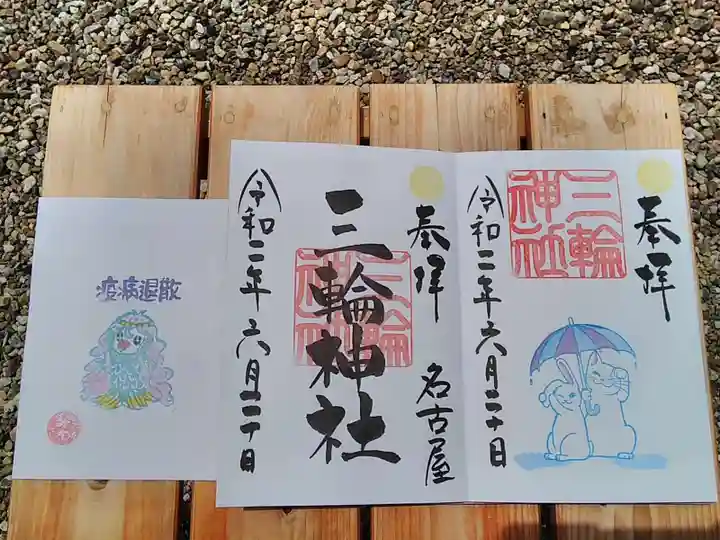 奉拝
三輪神社
令和二年六月二十日
奉拝
名古屋
三輪神社
三輪神社
令和二年六月二十日
疫病退散